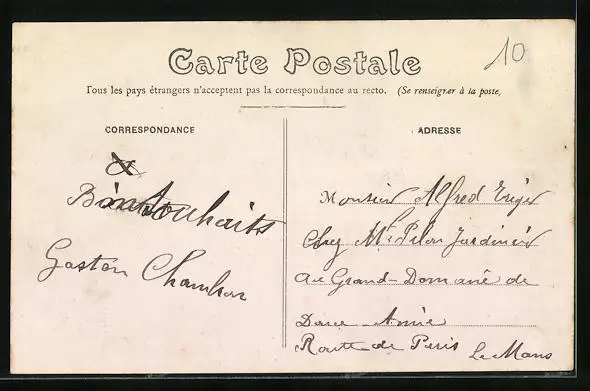 10
Carte Postale
Tous les pays étrangers n'acceptent pas la correspondance au recto. (Se renseigner à la poste)
CORRESPONDANCE
ADRESSE
Souhaits
Gaston
Monsieur Alfred
Chez Mr Pilon Jardinier
au Grand Domaine de
Route de Paris Le Mans